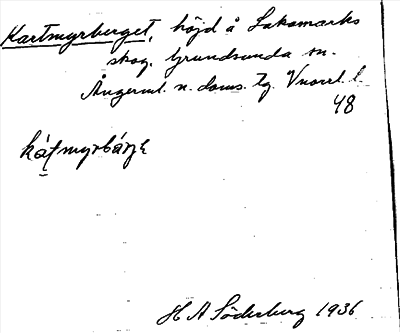 Kartmyrberget, höjd å Saksmarks
skog, Grundsunda sn.
Ångerml. n. doms. Tg.
48
kátmyrbárjε
H A Söderberg 1936